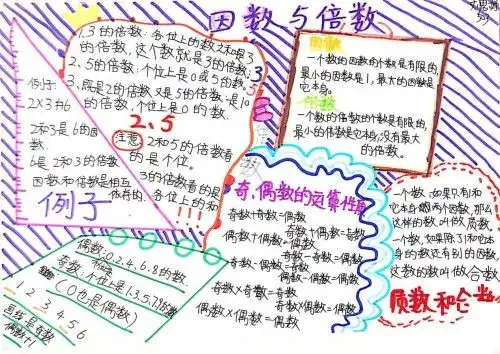 因数与倍数
1.3的倍数:各位上的数之和是3
的倍数,这个数就是3的倍数
2.5的倍数:个位上是0或5的数
3.既是2的倍数又是5的倍数:是10
的倍数,个位上是0的数.
2、5
注意
2和5的倍数看
的是个位。
3的倍数看的是
各位上的和
例子:
2×3=6
2和3是6的因
数.
6是2和3的倍数
因数和倍数是相互
依存的.
例子
因数
一个数的因数的个数是有限的,
最小的因数是1,最大的因数是
它本身.
倍数
一个数的倍数的个数是有限的,
最小的倍数是它本身,没有最大
的倍数.
奇、偶数的运算性质
奇数+奇数=偶数
奇数+偶数=奇数
偶数+偶数=偶数
奇数-奇数=偶数
奇数-偶数=奇数
偶数-偶数=偶数
奇数×奇数=奇数
奇数×偶数=偶数
偶数×偶数=偶数
一个数,如果只有1和
它本身的两个因数,那么
这样的数叫做质数.
一个数,如果除了1和它本
身的数还有别的因数
这数的数叫做合数
质数和合数
偶数:0.2.4.6.8的数.
奇数:个位上是1.3.5.7.9的数
(0也是偶数)
1 2 3 4 5 6
画线是奇数
偶数+1